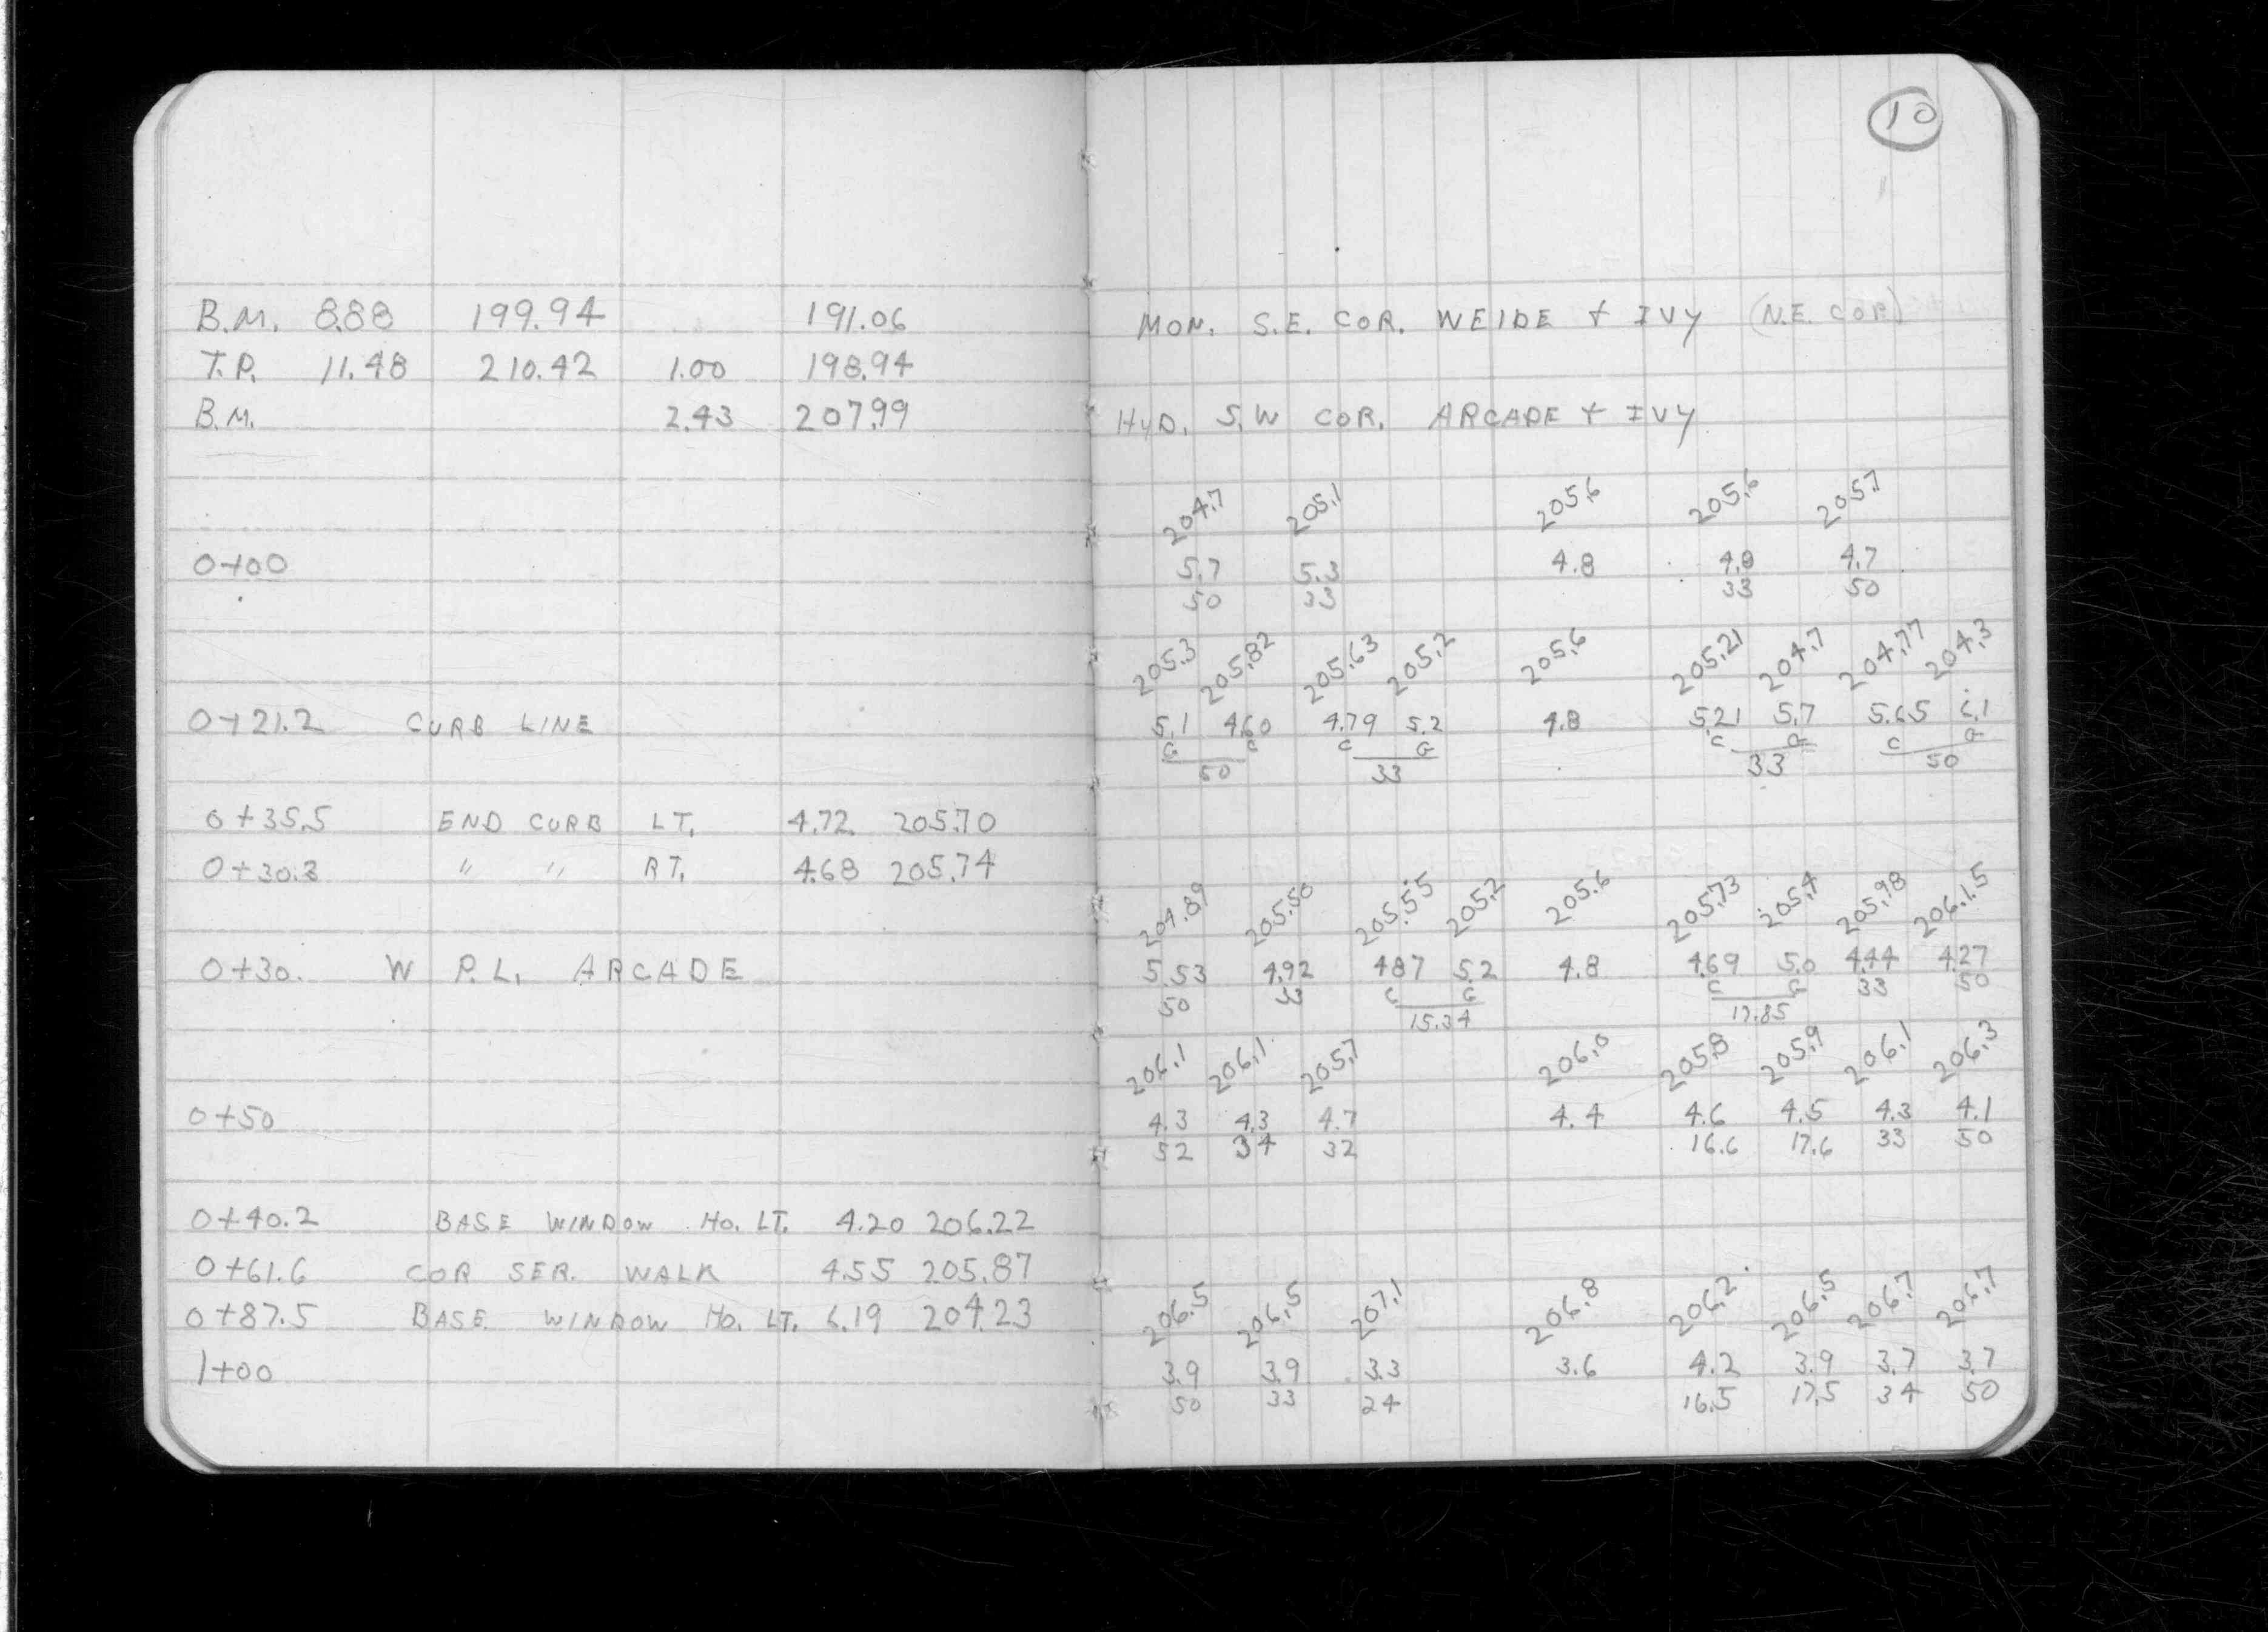 10
B.M. 8.88 199.94 191.06 MON. S.E. COR. WEIDE + IVY (N.E. COR)
T.P. 11.48 210.42 1.00 198.94
B.M. 2.43 207.99 HYD. S.W COR. ARCADE + IVY
204.7 205.1 205.6 205.6 205.7
0+00 5.7 5.3 4.8 4.8 4.7
50 33 33 50
205.3 205.82 205.63 205.2 205.6 205.21 204.7 204.77 204.3
0+21.2 CURB LINE 5.1 4.60 4.79 5.2 4.8 5.21 5.7 5.65 6.1
G C C G C G C G
50 33 33 50
0+35.5 END CURB LT. 4.72 205.70
0+30.3 " " RT. 4.68 205.74
204.89 205.50 205.55 205.2 205.6 205.73 205.4 205.98 206.15
0+30. W P.L. ARCADE 5.53 4.92 4.87 5.2 4.8 4.69 5.0 4.44 4.27
50 33 C G C G 33 50
15.34 17.85
206.1 206.1 205.7 206.0 205.8 205.9 206.1 206.3
0+50 4.3 4.3 4.7 4.4 4.6 4.5 4.3 4.1
52 34 32 16.6 17.6 33 50
0+40.2 BASE WINDOW HO. LT. 4.20 206.22
0+61.6 COR SER. WALK 4.55 205.87
206.5 206.5 207.1 206.8 206.2 206.5 206.7 206.7
0+87.5 BASE WINDOW HO. LT. 6.19 204.23
1+00 3.9 3.9 3.3 3.6 4.2 3.9 3.7 3.7
50 33 24 16.5 17.5 34 50